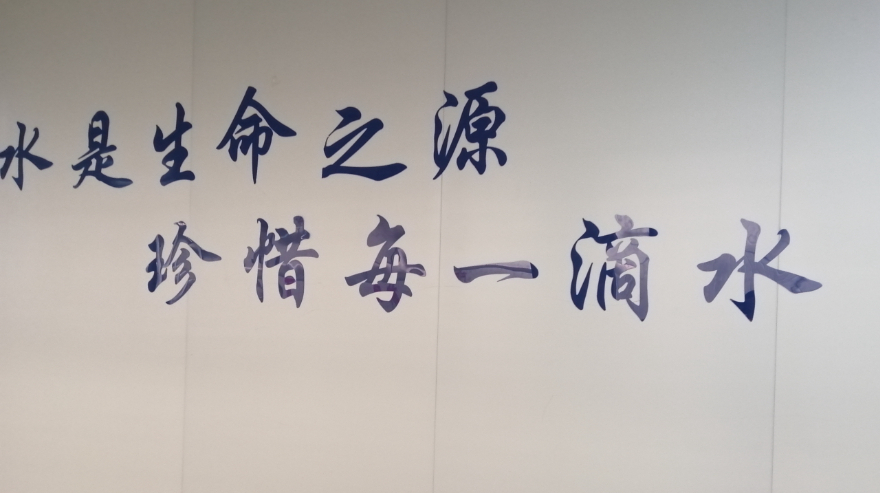 水是生命之源
珍惜每一滴水